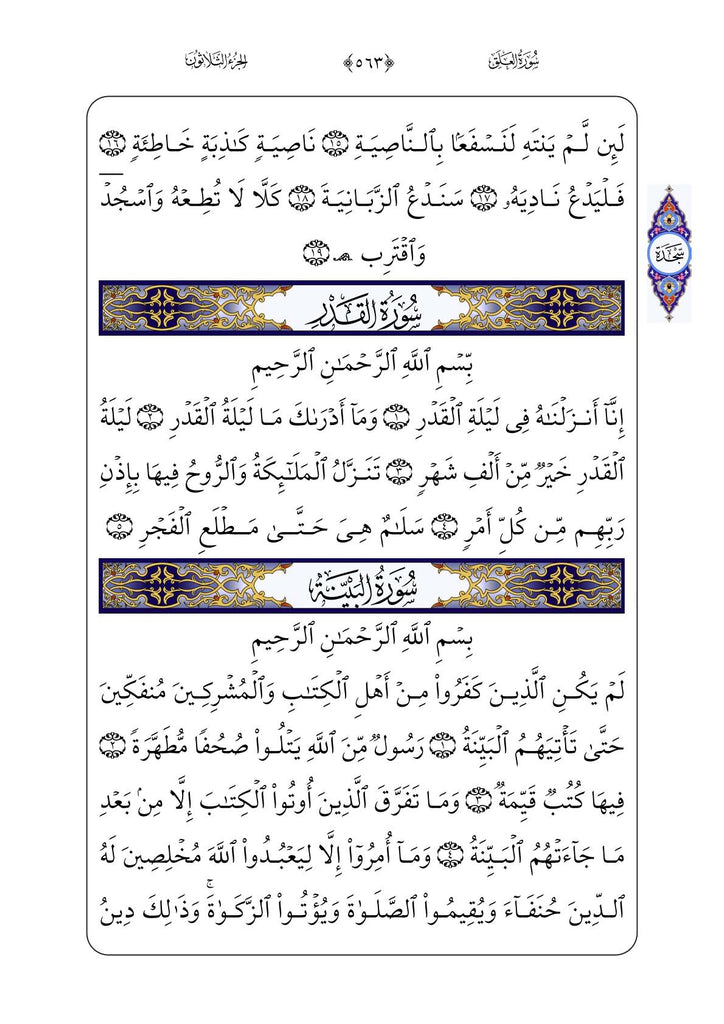 سُورَةُ العَلَقِ ﴿٥٦٣﴾ الجُزءُ الثَّلَاثُونَ
لَئِن لَّمۡ يَنتَهِ لَنَسۡفَعَۢا بِٱلنَّاصِيَةِ ١٥ نَاصِيَةٖ كَٰذِبَةٍ خَاطِئَةٖ ١٦
فَلۡيَدۡعُ نَادِيَهُۥ ١٧ سَنَدۡعُ ٱلزَّبَانِيَةَ ١٨ كَلَّا لَا تُطِعۡهُ وَٱسۡجُدۡۤ
وَٱقۡتَرِب ۩ ١٩
سَجْدَة
سُورَةُ القَدْرِ
بِّسۡمِ ٱللَّهِ ٱلرَّحۡمَٰنِ ٱلرَّحِيمِ
إِنَّآ أَنزَلۡنَٰهُ فِي لَيۡلَةِ ٱلۡقَدۡرِ ١ وَمَآ أَدۡرَىٰكَ مَا لَيۡلَةُ ٱلۡقَدۡرِ ٢ لَيۡلَةُ
ٱلۡقَدۡرِ خَيۡرٞ مِّنۡ أَلۡفِ شَهۡرٖ ٣ تَنَزَّلُ ٱلۡمَلَٰٓئِكَةُ وَٱلرُّوحُ فِيهَا بِإِذۡنِ
رَبِّهِم مِّن كُلِّ أَمۡرٖ ٤ سَلَٰمٌ هِيَ حَتَّىٰ مَطۡلَعِ ٱلۡفَجۡرِ ٥
سُورَةُ البَيِّنَةِ
بِسۡمِ ٱللَّهِ ٱلرَّحۡمَٰنِ ٱلرَّحِيمِ
لَمۡ يَكُنِ ٱلَّذِينَ كَفَرُواْ مِنۡ أَهۡلِ ٱلۡكِتَٰبِ وَٱلۡمُشۡرِكِينَ مُنفَكِّينَ
حَتَّىٰ تَأۡتِيَهُمُ ٱلۡبَيِّنَةُ ١ رَسُولٞ مِّنَ ٱللَّهِ يَتۡلُواْ صُحُفٗا مُّطَهَّرَةٗ ٢
فِيهَا كُتُبٞ قَيِّمَةٞ ٣ وَمَا تَفَرَّقَ ٱلَّذِينَ أُوتُواْ ٱلۡكِتَٰبَ إِلَّا مِنۢ بَعۡدِ
مَا جَآءَتۡهُمُ ٱلۡبَيِّنَةُ ٤ وَمَآ أُمِرُوٓاْ إِلَّا لِيَعۡبُدُواْ ٱللَّهَ مُخۡلِصِينَ لَهُ
ٱلدِّينَ حُنَفَآءَ وَيُقِيمُواْ ٱلصَّلَوٰةَ وَيُؤۡتُواْ ٱلزَّكَوٰةَۚ وَذَٰلِكَ دِينُ